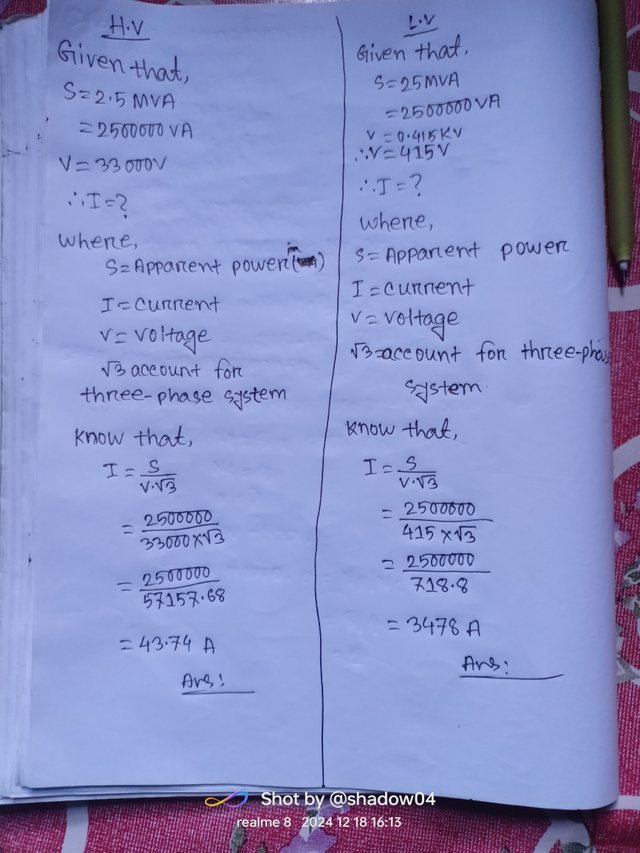 H.V
Given that,
S=2.5 MVA
=2500000 VA
V=33000V
∴I=?
where,
S=Apparent power
I=current
V=voltage
√3 account for
three-phase system
Know that,
I = S/V.√3
= 2500000/33000×√3
= 2500000/57157.68
= 43.74 A
Ans:
L.V
Given that,
S=25MVA
=2500000VA
V=0.415KV
∴V=415V
∴I=?
where,
S=Apparent power
I=current
V=voltage
√3=account for three-phase
system
Know that,
I = S/V.√3
= 2500000/415×√3
= 2500000/718.8
= 3478 A
Ans:
Shot by @shadow04
realme 8 2024 12 18 16:13